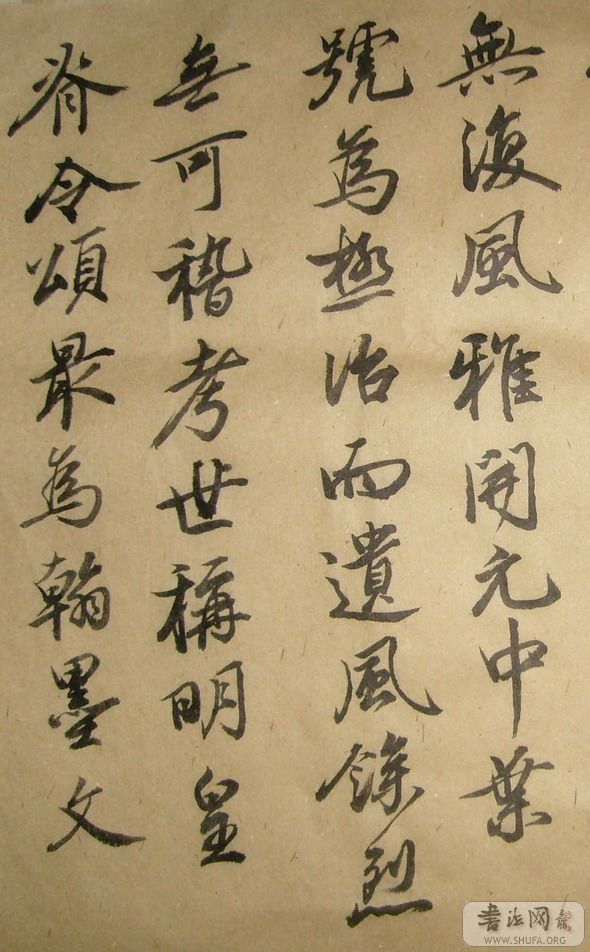 無復風雅開元中業
號為極治而遺風餘烈
無可稽考世稱明皇
脊令頌最為翰墨文
書法网
WWW.SHUFA.ORG